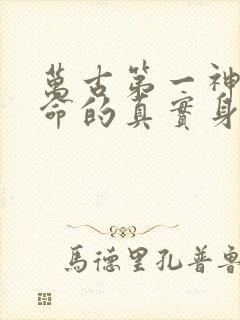 萬古第一神
命的真實身
馬德里孔普魯